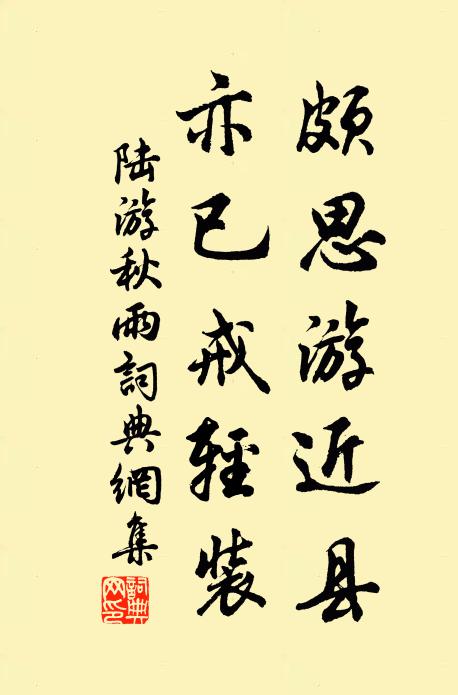 頗思游近县
亦已戒輕裝
陆游秋雨詞典網集
詞典网印